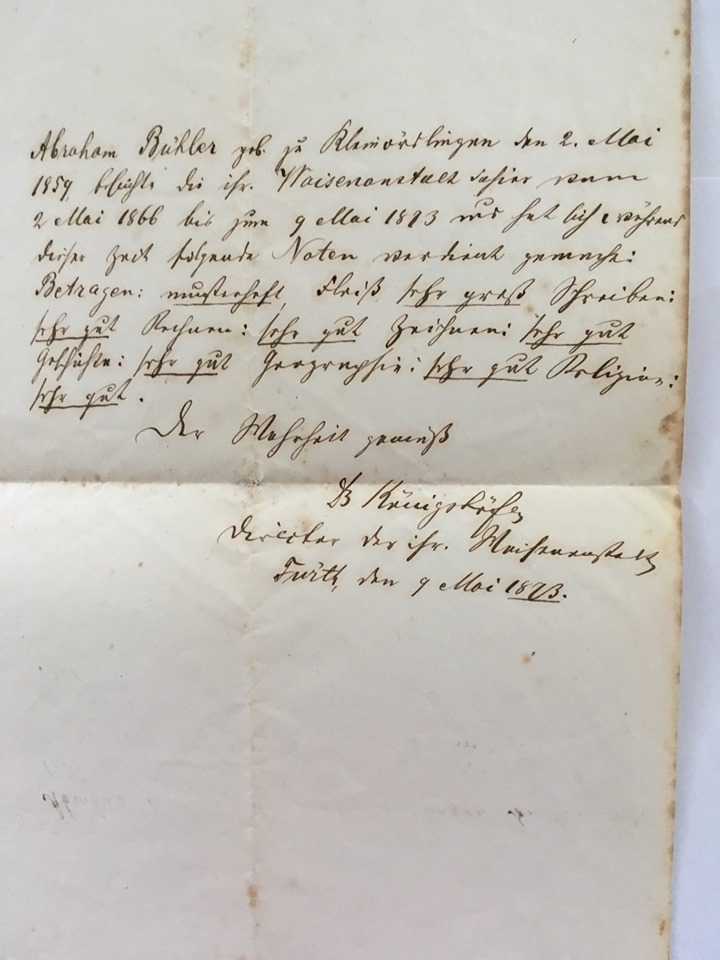 Abraham Bühler geb. zu Kleinördlingen den 2. Mai
1859 besuchte die isr. Waisenanstalt dahier vom
2 Mai 1866 bis zum 9 Mai 1873 und hat sich während
dieser Zeit folgende Noten verdient gemacht:
Betragen: musterhaft, Fleiß sehr groß Schreiben:
sehr gut Rechnen: sehr gut Zeichnen: sehr gut
Geschichte: sehr gut Geographie: sehr gut Religion:
sehr gut.
Der Wahrheit gemäß
Königshöfer
Director der isr. Waisenanstalt
Fürth, den 9 Mai 1873.